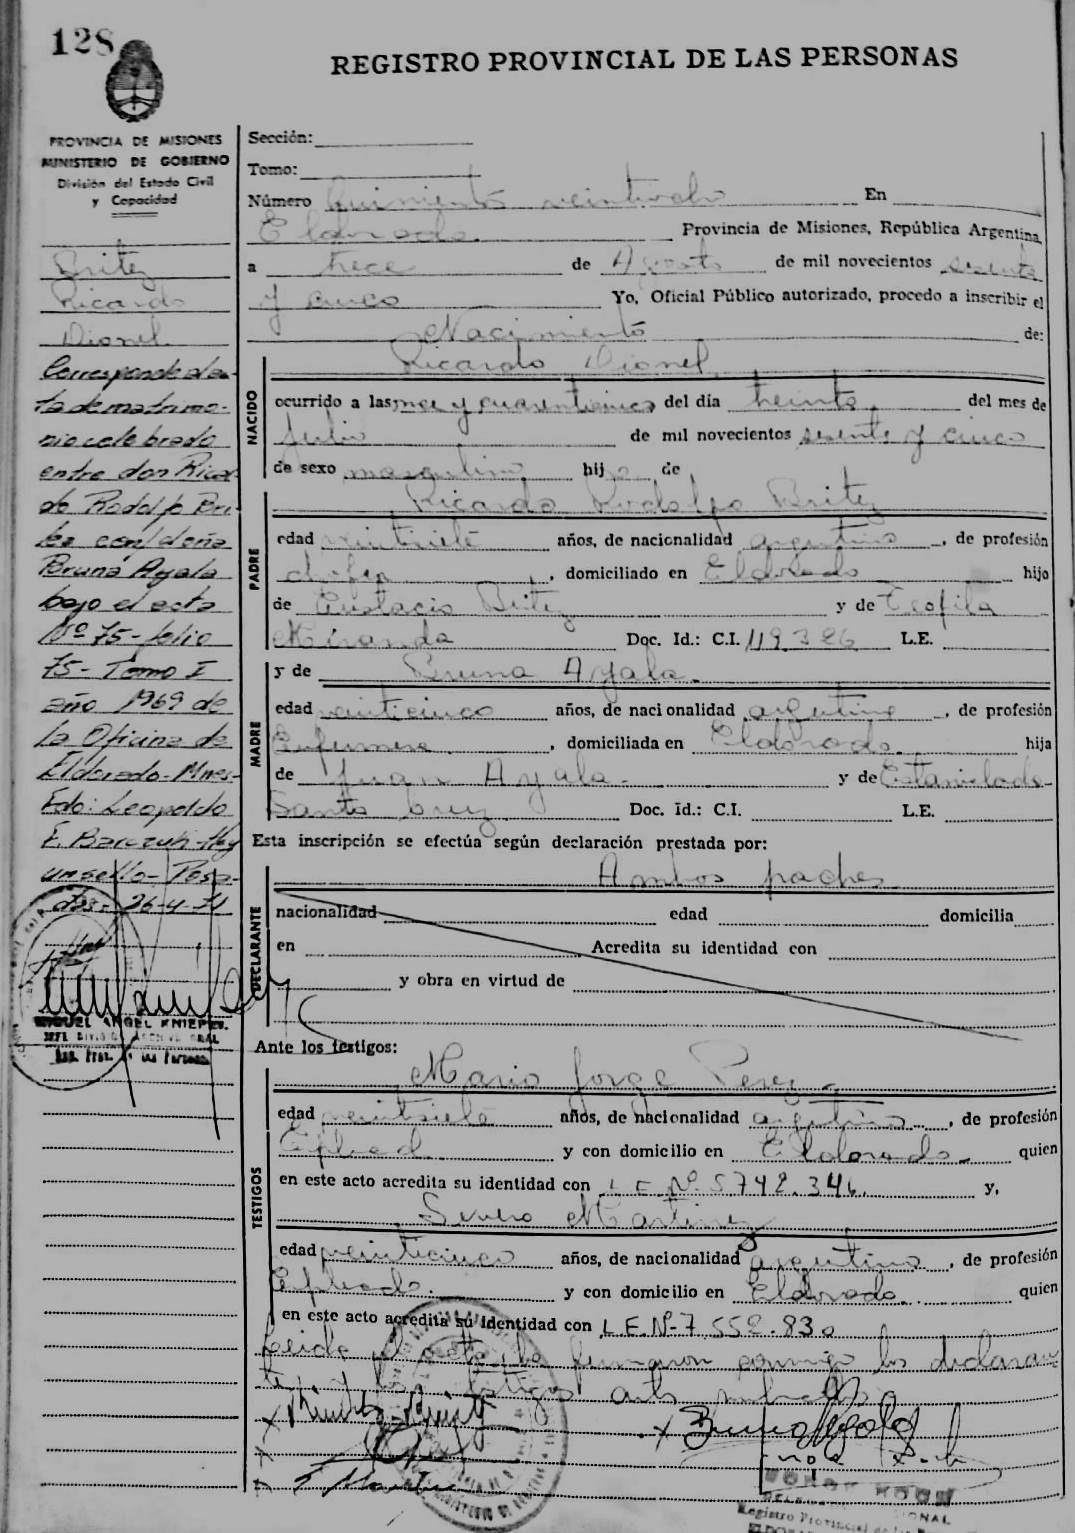 128
REGISTRO PROVINCIAL DE LAS PERSONAS
PROVINCIA DE MISIONES
MINISTERIO DE GOBIERNO
División del Estado Civil
y Capacidad
Britez
Ricardo
Dionel
Corresponde al ac-
ta de matrimo-
nio celebrado
entre don Ricar
do Rodolfo Bri
tez con doña
Bruna Ayala
bajo el acta
Nº 75 - folio
75 - Tomo I
año 1969 de
la Oficina de
Eldorado - Mnes-
Fdo: Leopoldo
E. Barczuk - Hay
un sello - Posa-
das - 26-4-71
MIGUEL ANGEL KNIEPEU.
JEFE DIVISION ARCHIVO GRAL
Sección:
Tomo:
Número Quinientos veintiocho En
Eldorado Provincia de Misiones, República Argentina,
a trece de Agosto de mil novecientos sesenta
y cinco Yo, Oficial Público autorizado, procedo a inscribir el
Nacimiento de:
NACIDO
Ricardo Dionel
ocurrido a las y cuarenticinco del día treinta del mes de
Julio de mil novecientos sesenta y cinco
de sexo masculino hijo de
PADRE
Ricardo Rodolfo Britez
edad veintisiete años, de nacionalidad argentino, de profesión
chofer, domiciliado en Eldorado hijo
de Eustacio Britez y de Teofila
Miranda Doc. Id.: C.I. 119.386 L.E.
MADRE
y de Bruna Ayala.
edad veinticinco años, de nacionalidad argentina, de profesión
Enfermera, domiciliada en Eldorado. hija
de Juan Ayala. y de Estanislada
Santa Cruz Doc. Id.: C.I. L.E.
Esta inscripción se efectúa según declaración prestada por:
DECLARANTE
Ambos padres
nacionalidad edad domicilia
en Acredita su identidad con
y obra en virtud de
Ante los testigos:
TESTIGOS
Mario Jorge Perez
edad veintisiete años, de nacionalidad argentino, de profesión
Emplead y con domicilio en Eldorado. quien
en este acto acredita su identidad con L E Nº 5742.346. y,
Severo Martinez
edad veinticinco años, de nacionalidad argentino, de profesión
Empleado. y con domicilio en Eldorado quien
en este acto acredita su identidad con L.E.Nº 7.552.830
Leida el acta la firmaron conmigo los declaran
tes y los testigos
Bruna Ayala
Registro Provincial de las